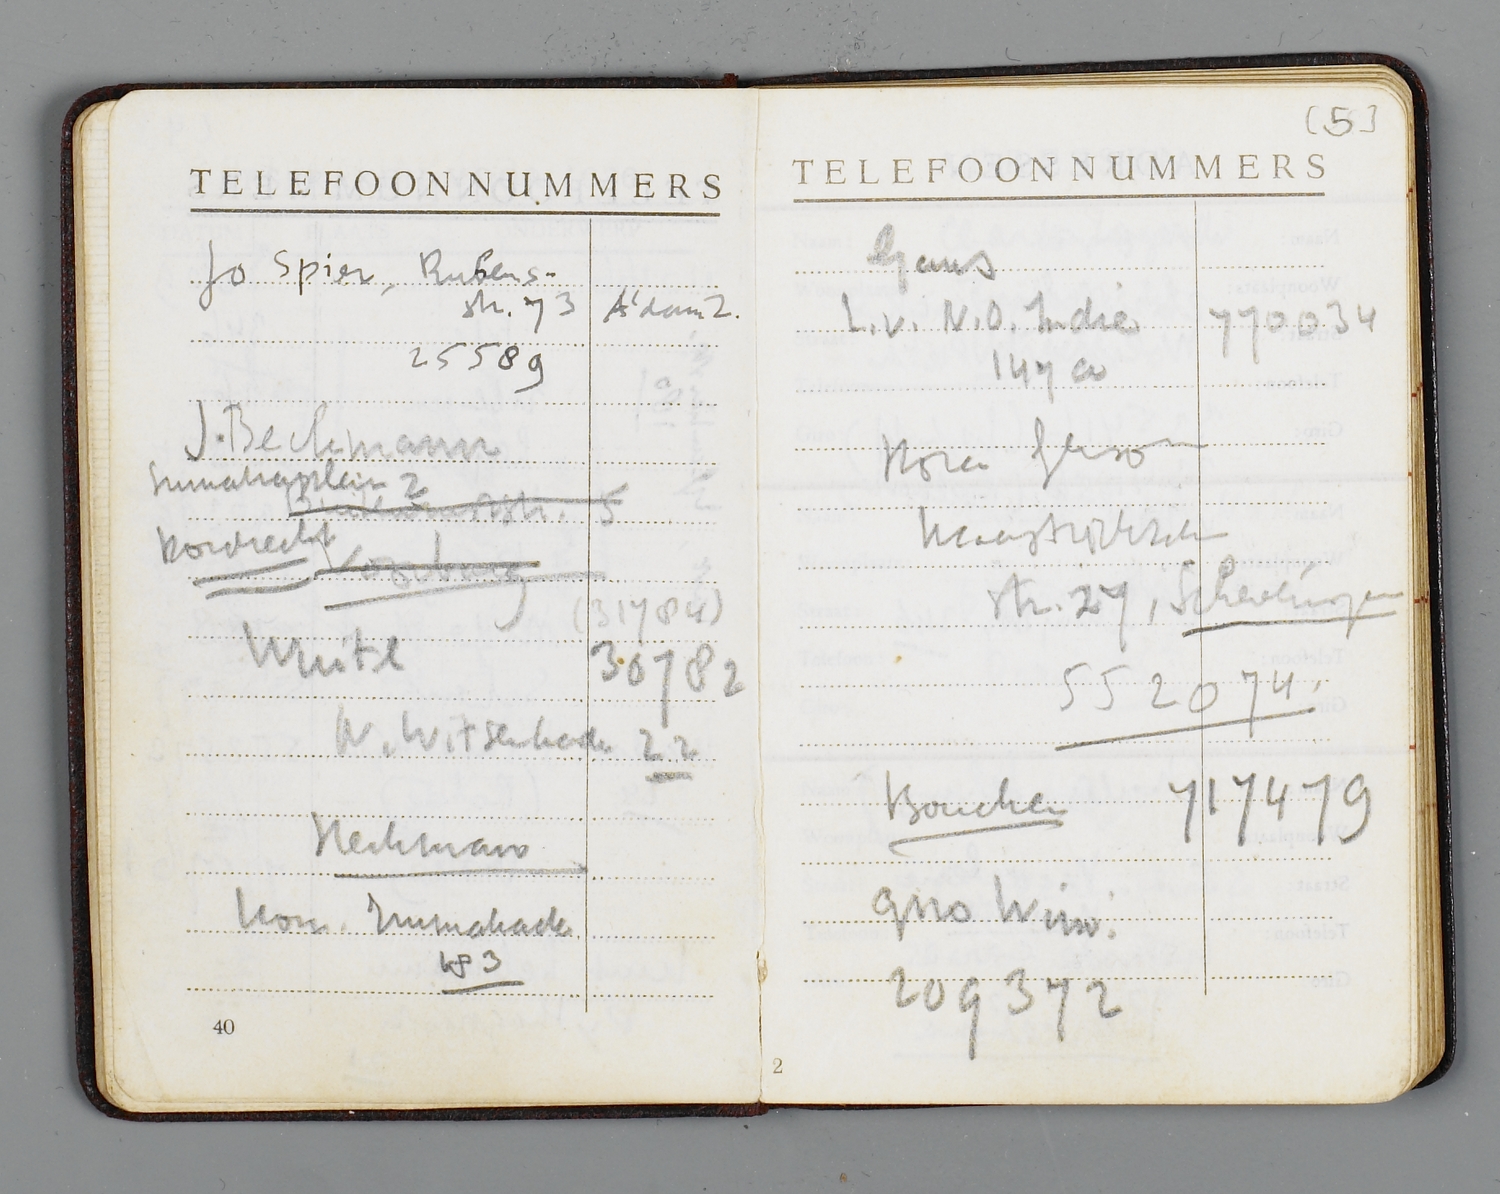 TELEFOONNUMMERS
Jo Spier, Rubens-
str. 73 A'dam Z.
25589
J. Beckmann
Sumatraplein 2
str. 5
Dordrecht Voorburg
(31784)
30782
N. Witsenkade 22
Heckman
Kon. Emmakade
163
40
[5]
TELEFOONNUMMERS
Gans
L.v. N.O. Indie 770034
147a
Nora
Maastrichtsche
str. 27, Scheveningen
552074
Boucher 717479
209372
2